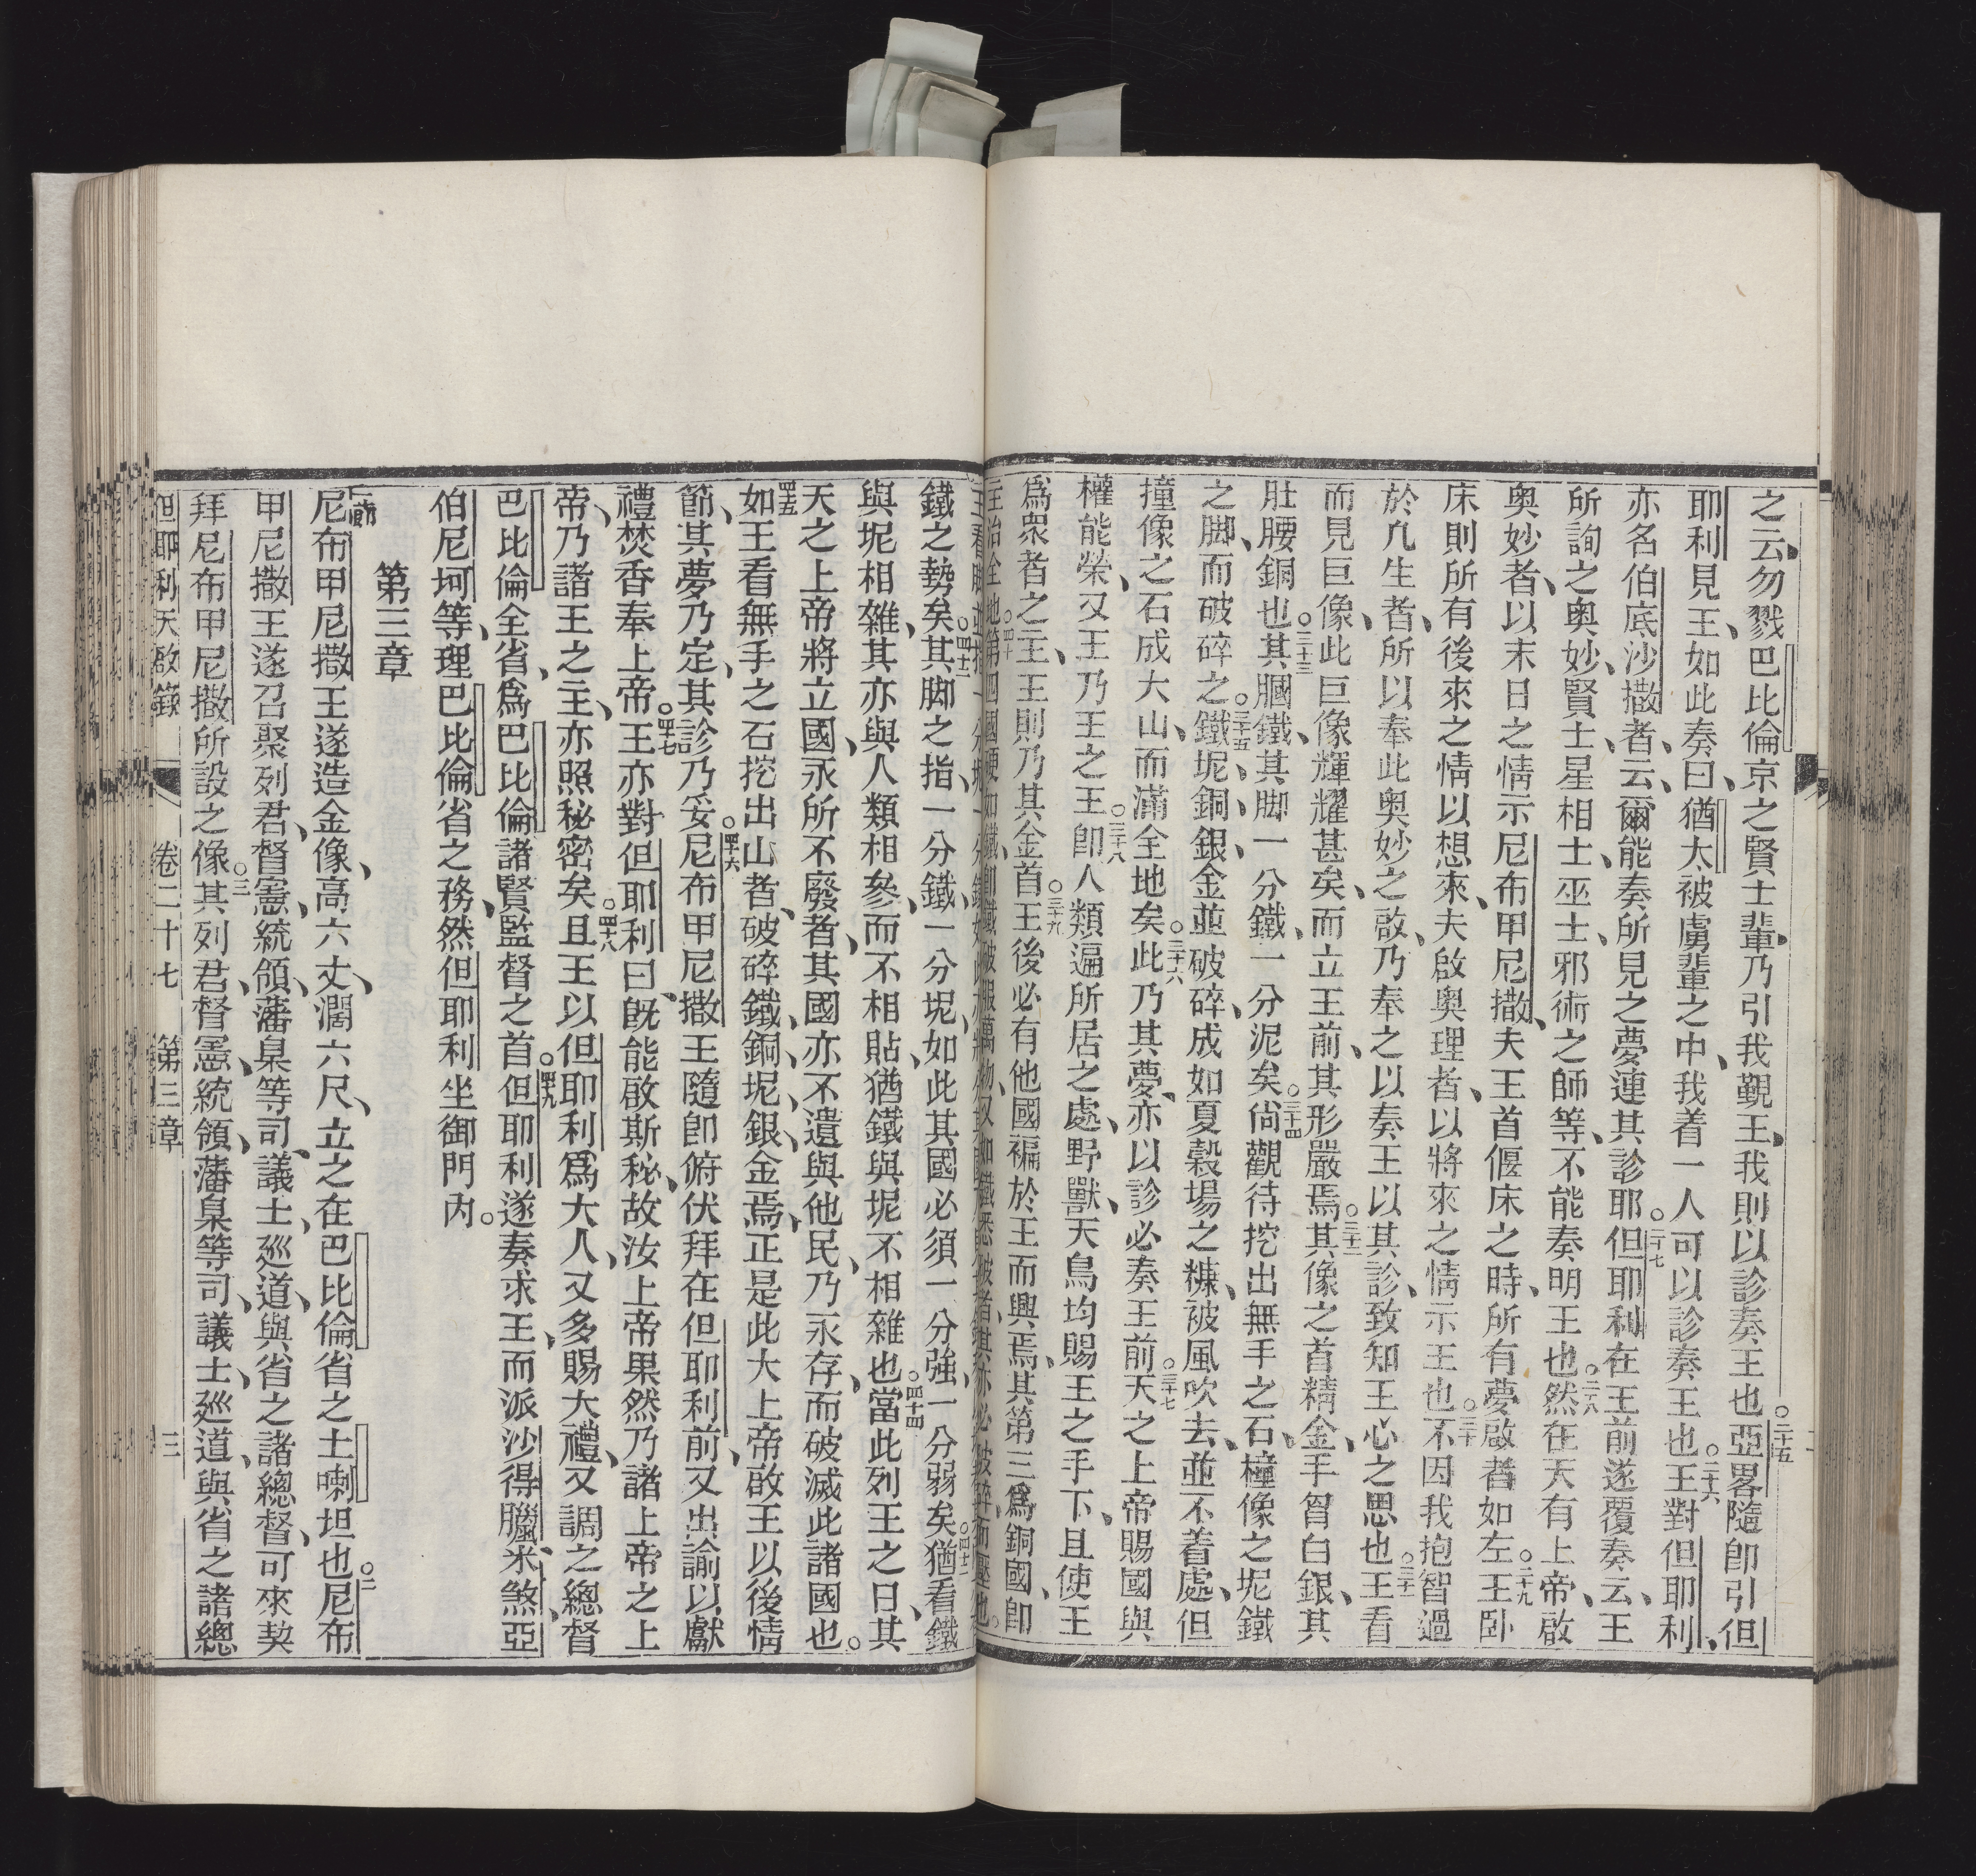 之云、勿戮巴比倫京之賢士輩、乃引我覲王、我則以診奏王也。二十五亞畧隨卽引但
耶利見王、如此奏曰、猶太被虜輩之中、我着一人可以診奏王也。二十六王對但耶利、
亦名伯底沙撒者、云、爾能奏所見之夢連其診耶。二十七但耶利在王前遂覆奏云、王
所詢之奧妙、賢士、星相士、巫士、邪術之師等、不能奏明王也。二十八然在天有上帝、啟
奧妙者、以末日之情示尼布甲尼撒、夫王首偃床之時、所有夢啟者如左。二十九王臥
床則所有後來之情以想來、夫啟奧理者、以將來之情示王也。三十不因我抱智過
於凢生者、所以奉此奧妙之啟、乃奉之以奏王以其診、致知王心之思也。三十一王看
而見巨像、此巨像輝耀甚矣、而立王前、其形嚴焉。三十二其像之首精金、手胷白銀、其
肚腰銅也。三十三其膕鐵、其脚一分鐵、一分泥矣。三十四尙觀待挖出無手之石、撞像之坭鐵
之脚、而破碎之。三十五鐵、坭、銅、銀、金並破碎、成如夏穀場之糠、被風吹去、並不着處、但
撞像之石成大山、而滿全地矣。三十六此乃其夢、亦以診必奏王前。三十七天之上帝賜國與
權能榮、又王乃王之王。三十八卽人類遍所居之處、野獸、天鳥均賜王之手下、且使王
爲衆者之主、王則乃其金首。三十九王後必有他國褊於王而興焉、其第三爲銅國、卽
鐵之勢矣。四十二其脚之指、一分鐵、一分坭、如此其國必須一分強、一分弱矣。四十三猶看鐵
與坭相雜、其亦與人類相參、而不相貼、猶鐵與坭不相雜也。四十四當此列王之日、其
天之上帝將立國、永所不廢者、其國亦不遺與他民、乃永存、而破滅此諸國也。
四十五如王看無手之石挖出山者、破碎鐵、銅、坭、銀、金焉、正是此大上帝啟王以後情
節、其夢乃定、其診乃妥。四十六尼布甲尼撒王隨卽俯伏拜在但耶利前、又出諭以獻
禮焚香奉上帝。四十七王亦對但耶利曰、旣能啟斯秘、故汝上帝果然乃諸上帝之上
帝、乃諸王之主、亦照秘密矣。四十八且王以但耶利爲大人、又多賜大禮、又調之總督
巴比倫全省、爲巴比倫諸賢監督之首。四十九但耶利遂奏求王、而派沙得臘、米煞、亞
伯尼坷等、理巴比倫省之務、然但耶利坐御門內。
第三章
一節尼布甲尼撒王遂造金像、高六丈、濶六尺、立之在巴比倫省之土喇坦也。二尼布
甲尼撒王遂召聚列君、督憲、統領、藩臬等司、議士、廵道、與省之諸總督、可來契
拜尼布甲尼撒所設之像。三其列君、督憲、統領、藩臬等司、議士、廵道、與省之諸總
但耶利天啟錄 卷二十七 第三章 三